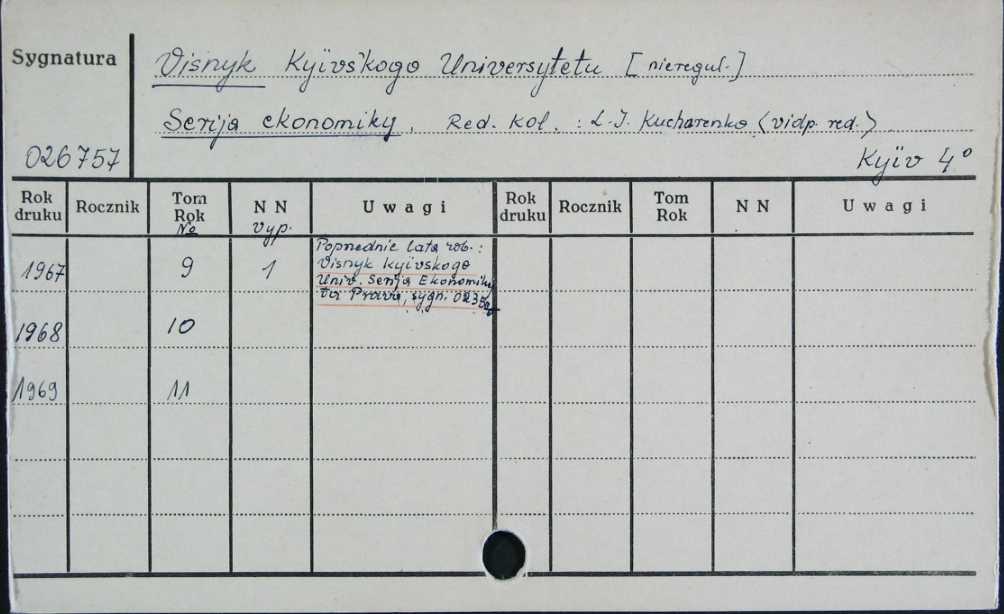 Sygnatura
Visnyk Kyïvs'kogo Universytetu [nieregul.]
Serija ekonomiky. Red. Kol. : L. J. Kucharenko (vidp. red.)
026757
Kyïv 4°
Rok druku Rocznik Tom Rok № N N Vyp. Uwagi Rok druku Rocznik Tom Rok N N Uwagi
1967 9 1
Poprzednie lata zob.:
Visnyk Kyïvskogo
Univ. Serija Ekonomiky
ta Prava, sygn.
1968 10
1969 11